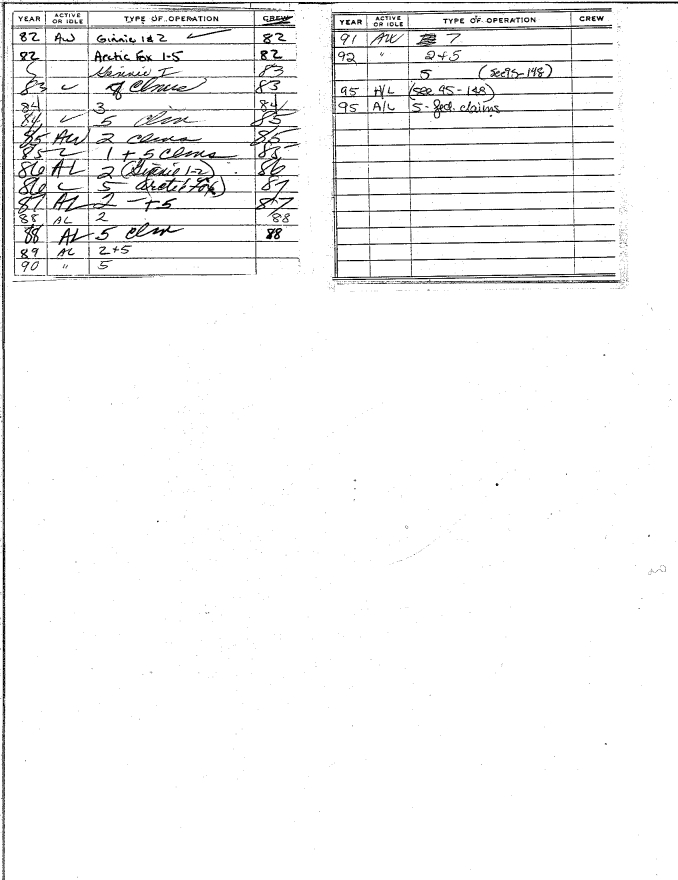 YEAR ACTIVE OR IDLE TYPE OF OPERATION CREW
82 AW Ginnie 1&2 ✓ 82
82 Arctic Fox 1-5 82
Ginnie I 83
83 ✓ Clms 83
84 3 84
84 ✓ 5 Clm 85
85 AW 2 clms 85
85 1 + 5 Clms 85
86 AL 2 (Ginnie 1-2) 86
86 5 Arctic Fox) 87
87 AL 2 - +5 87
88 AL 2 88
88 AL 5 Clm 88
89 AL 2+5
90 " 5
YEAR ACTIVE OR IDLE TYPE OF OPERATION CREW
91 AW 7
92 " 2+5
5 (see 95-148)
95 A/L (see 95-148)
95 A/L 5- fed. claims